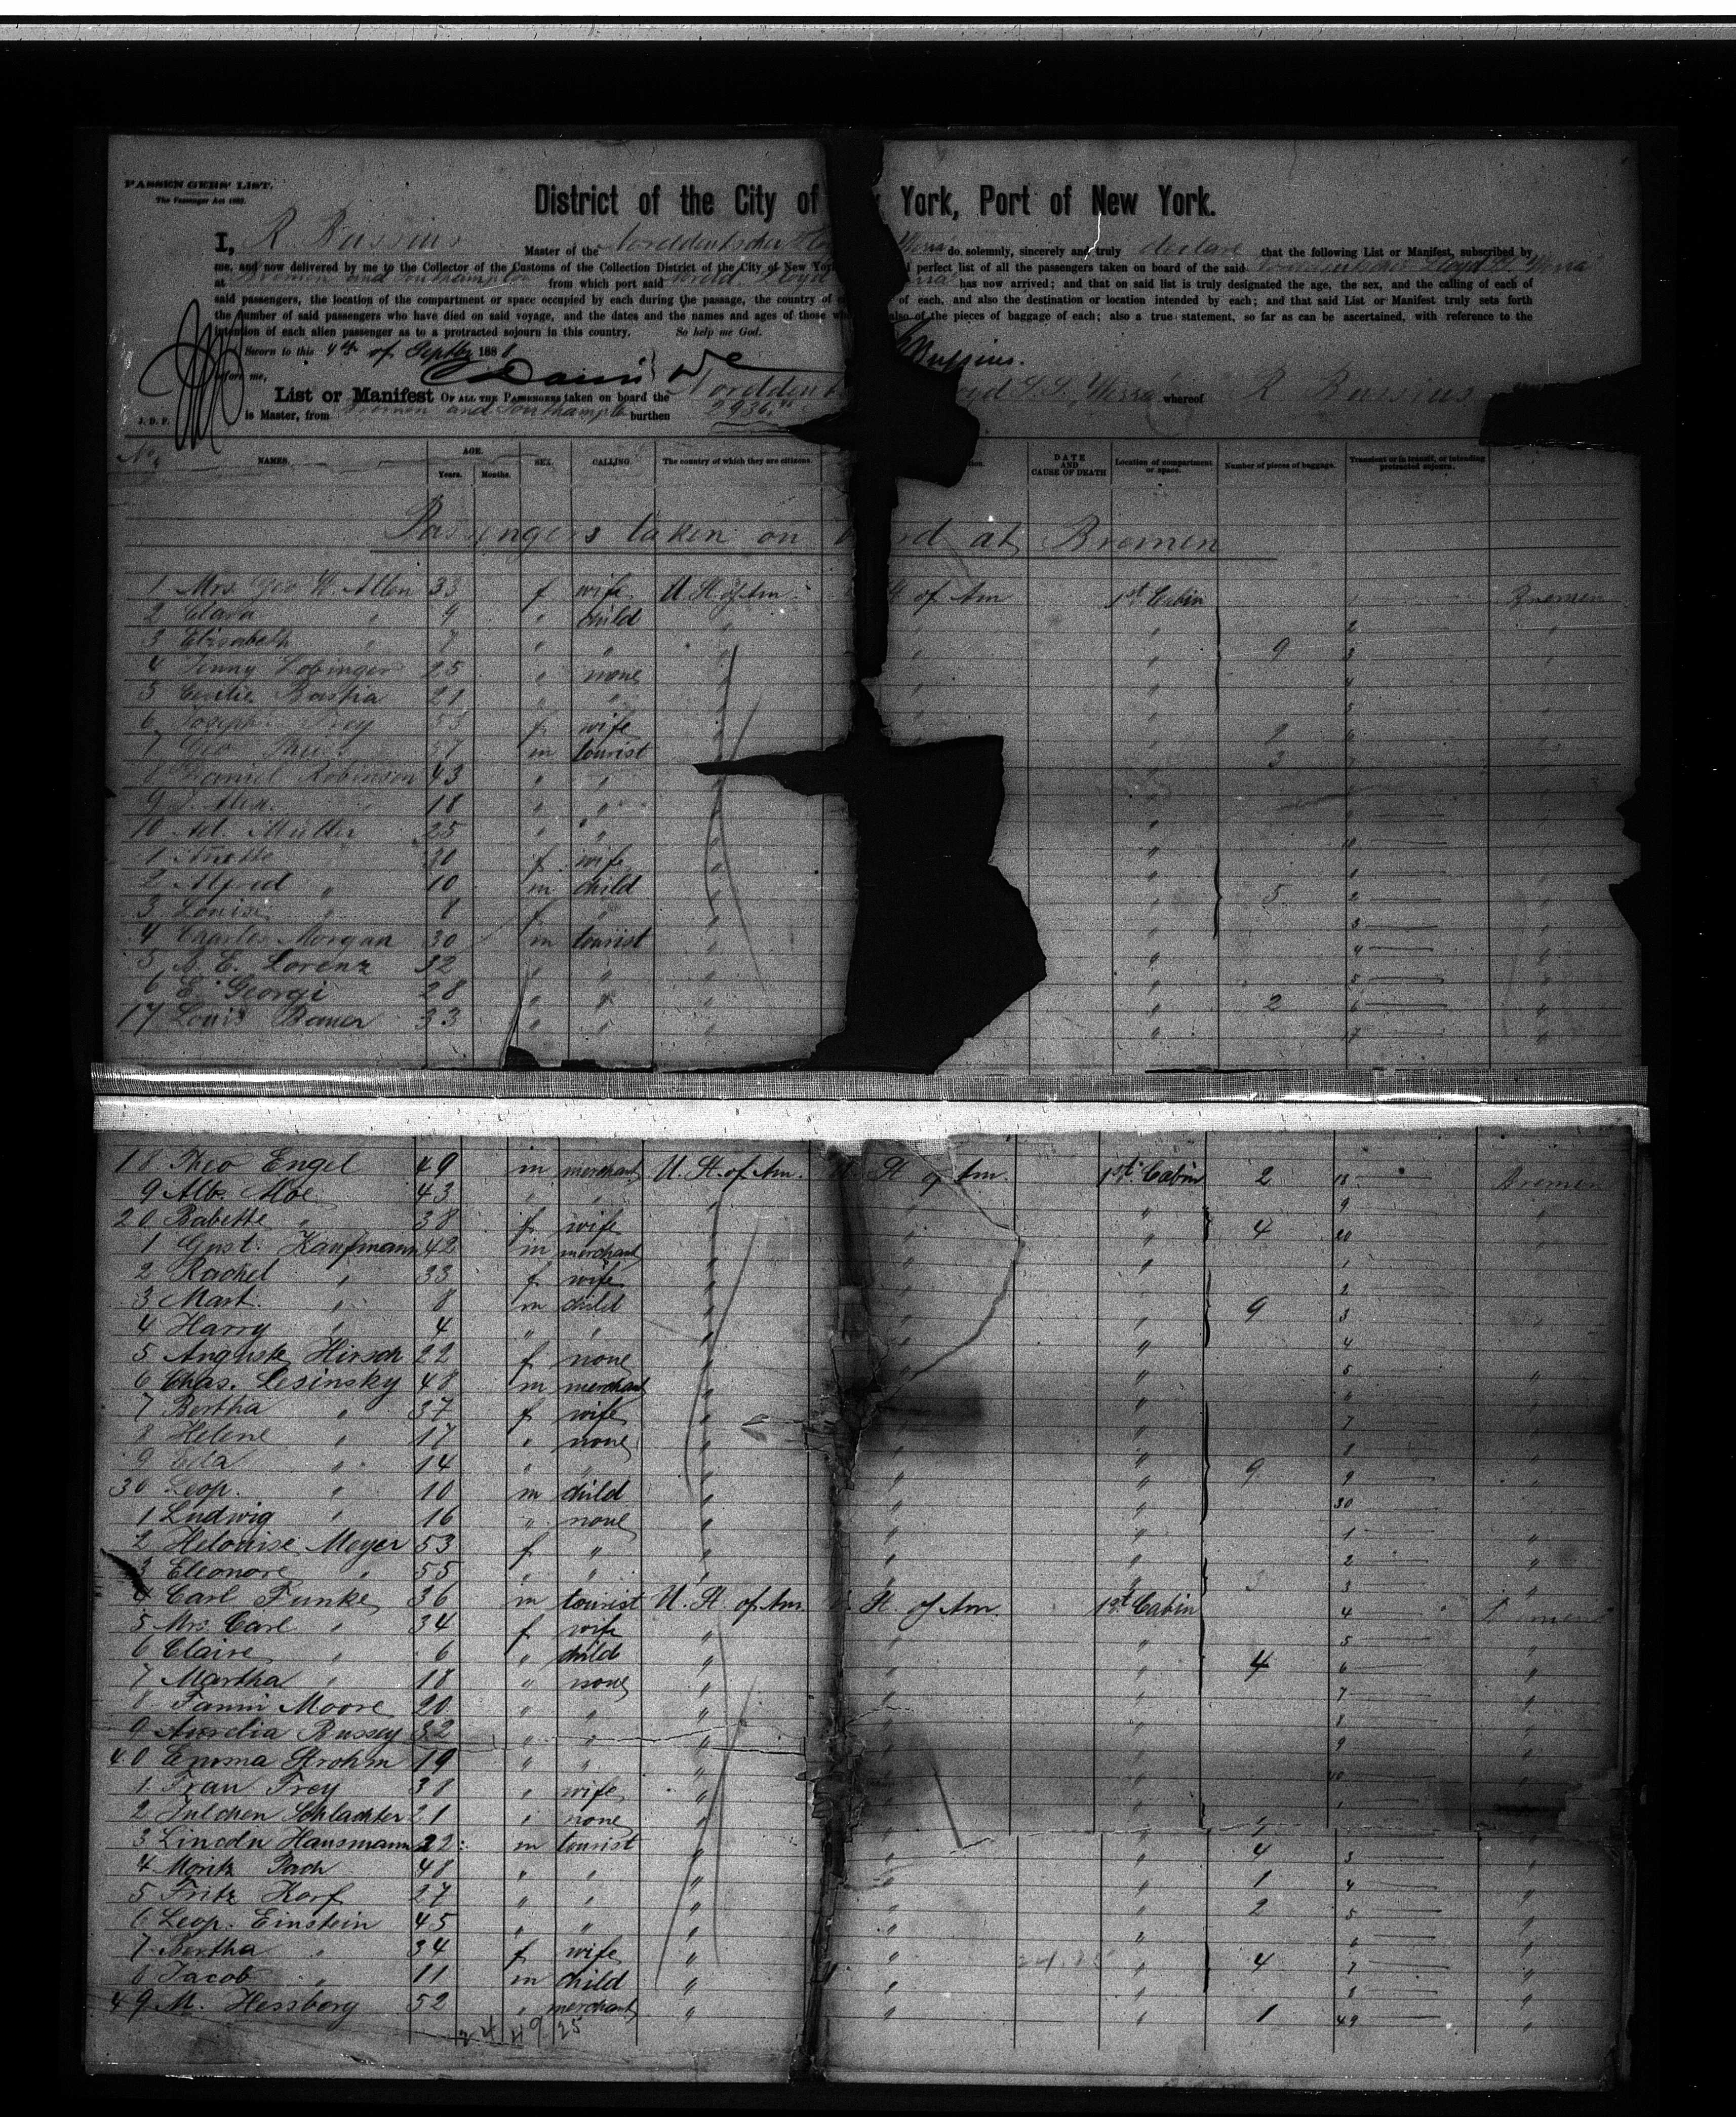 PASSENGERS' LIST.
The Passenger Act 1882.
District of the City of York, Port of New York.
I, R. Bussius Master of the Norddeutscher do solemnly, sincerely and truly declare that the following List or Manifest, subscribed by
me, and now delivered by me to the Collector of the Customs of the Collection District of the City of New perfect list of all the passengers taken on board of the said Lloyd Werra
at Bremen and Southampton from which port said Lloyd has now arrived; and that on said list is truly designated the age, the sex, and the calling of each of
said passengers, the location of the compartment or space occupied by each during the passage, the country of of each, and also the destination or location intended by each; and that said List or Manifest truly sets forth
the number of said passengers who have died on said voyage, and the dates and the names and ages of those also of the pieces of baggage of each; also a true statement, so far as can be ascertained, with reference to the
intention of each alien passenger as to a protracted sojourn in this country. So help me God.
Sworn to this 4th of Septbr 1888 Bussius.
before me,
List or Manifest OF ALL THE PASSENGERS taken on board the S.S. Werra whereof R Bussius
J. D. P. is Master, from Bremen and Southampton burthen 2936
No. NAMES. AGE. Years. Months. SEX. CALLING. The country of which they are citizens. DATE AND CAUSE OF DEATH Location of compartment or space. Number of pieces of baggage. Transient or in transit, or intending protracted sojourn.
Passengers taken on at Bremen
1 Mrs. Geo W. Allen 33 f wife U. St. of Am. St. of Am 1st Cabin 1 Bremen
2 Clara " 9 " child " " 2 "
3 Elisabeth " 7 " " " " " 9 3
4 Jenny Lobinger 25 " none " " 4
5 Cecilie 21 " " " " 5
6 Frey 53 f wife " 6
7 Geo 57 m tourist " " 3 7
8 Daniel Robinson 43 " " "
9 J. Alex. " 18 " " " "
10 Ad. Müller 25 " " " " 10
1 " 30 f wife " " 1
2 Alfred " 10 m child " " 5 2
3 Louise " 8 f " " " 3
4 Charles Morgan 30 m tourist " " 4
5 A. E. Lorenz 32 " " " " 5
6 E. Georgi 28 " " " " 2 6 "
17 Louis Bauer 33 " " " " 17 "
18 Theo Engel 49 m merchant U. St. of Am. U. St. of Am. 1st Cabin 2 18 Bremen
9 Alb. Moe 43 " " " " " 9 "
20 Babette " 38 f wife " " " 4 20 "
1 Gust. Kaufmann 42 m merchant " " " 1
2 Rachel " 33 f wife " 2
3 Mart. " 8 m child " " " 9 3
4 Harry " 4 " " " " " 4
5 Auguste Hirsch 22 f none " " " 5 "
6 Chas. Lesinsky 48 m merchant " " 6 "
7 Bertha " 37 f wife " " 7
8 Helene " 17 " none " " " 8
9 Eda " 14 " " " " " 9 9 "
30 Leop. " 10 m child " " " 30
1 Ludwig " 16 " none " " " 1 "
2 Helouise Meyer 53 f " " " " 2 "
3 Eleonore " 55 " " " " 3 3 "
4 Carl Funke 36 m tourist U. St. of Am. U. St. of Am. 1st Cabin 4 Bremen
5 Mrs. Carl " 34 f wife " " " 5 "
6 Claire " 6 " child " " " 4 6 "
7 Martha " 18 " none " " " 7 "
8 Fanni Moore 20 " " " " " 8 "
9 Aurelia Bussey 32 " " " " " 9 "
40 Emma Strohm 19 " " " " 40 "
1 Frau Frey 38 " wife " " 1
2 Julchen Schlachter 21 " none " "
3 Lincoln Hausmann 22 m tourist " " " 4 3 "
4 Moritz 48 " " " " " 1 4 "
5 Fritz Korf 27 " " " " " 2 5 "
6 Leop. Einstein 45 " " " " " 6 "
7 Bertha " 34 f wife " " " 4 7 "
8 Jacob " 11 m child " " " 8 "
49 M. Hessberg 52 " merchant " " " 1 49 "
24 49 25